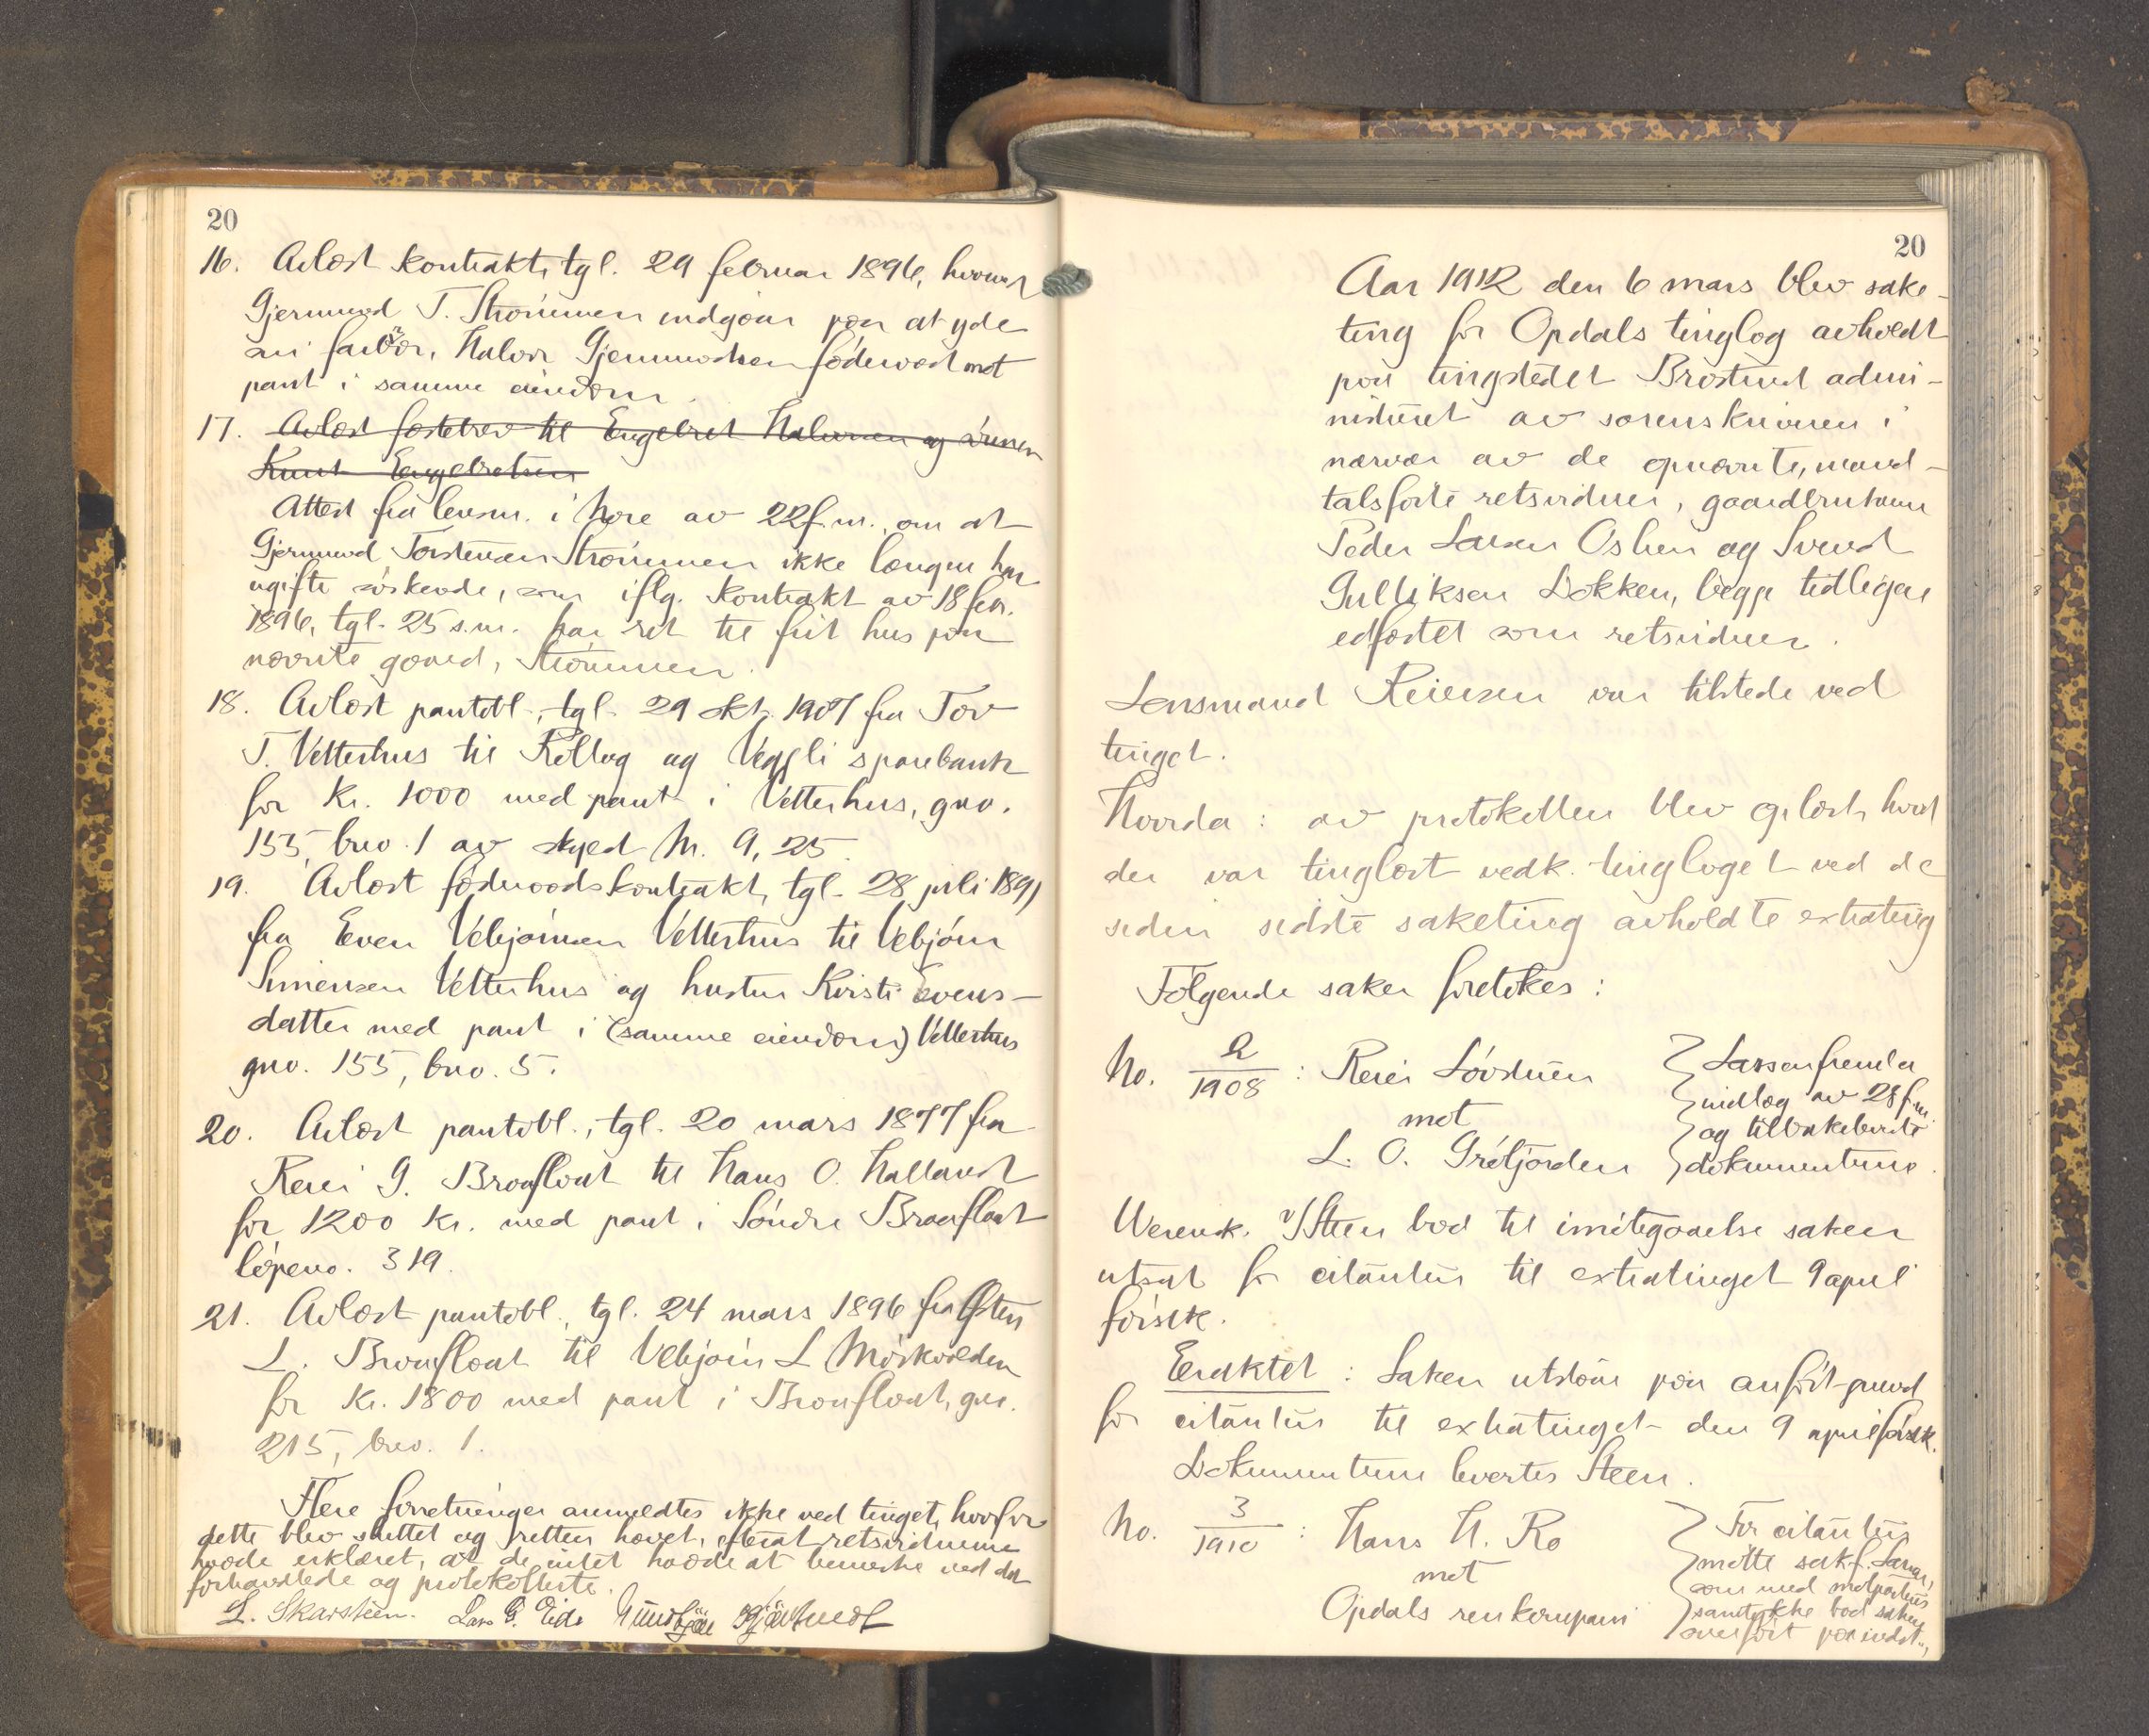 20
16. Avlæst kontrakt, tgl. 29 februar 1896, hvorved
Gjermund T. Strømmen indgaar paa at yde
sin farbror, Halvor Gjermundsen føderaad mot
pant i samme eiendom.
17. Avlæst festebrev til Engebret Halvorsen og sønnen
Knut Engebretsen
Attest fra lensm. i Nore av 22 f.m., om at
Gjermund Torstensen Strømmen ikke længer har
ugifte søskende, som iflg. kontrakt av 18 febr.
1896, tgl. 25 s.m. har ret til frit hus paa
nævnte gaard, Strømmen.
18. Avlæst pantobl., tgl. 29 okt. 1907 fra Tov
T. Vetterhus til Rollag og Veggli sparebank
for kr. 1000 med pant i Vetterhus, gno.
155, bno. 1 av skyld M. 9,25
19. Avlæst føderaadskontrakt, tgl. 28 juli 1891
fra Even Vebjørnsen Vetterhus til Vebjørn
Simensen Vetterhus og hustru Kirsti Evens-
datter med pant i (samme eiendom) Vetterhus
gno. 155, bno. 5.
20. Avlæst pantobl., tgl. 20 mars 1877 fra
Reier G. Braaflaat til Hans O. Halland
for 1200 kr. med pant i Søndre Braaflaat
løpeno. 319.
21. Avlæst pantobl., tgl. 24 mars 1896 fra Østen
L. Braaflaat til Vebjørn L Mørkvolden
for kr. 1800 med pant i Braaflaat, gno.
215, bno. 1.
Flere forretninger anmeldtes ikke ved tinget, hvorfor
dette blev sluttet og retten hævet, efterat retsvidnerne
hadde erklæret, at de intet hadde at bemerke ved det
forhandlede og protokollerte.
L. Skarsteen. Lars G. Eide
20
Aar 1912 den 6 mars blev sake-
ting for Opdals tinglag avholdt
paa tingstedet Brøstrud admi-
nistreret av sorenskriveren i
nærvær av de opnævnte, mand-
talsførte retsvidner, gaardbrukerne
Peder Larsen Oshen og Svend
GulliksenLøkken, begge tidligere
edfæstet som retsvidner.
Lensmand Reiersen var tilstede ved
tinget.
Hvorda: av protokollen blev oplæst, hvad
der var tinglæst vedk. tinglaget ved de
siden sidste saketing avholdte extrating
Følgende saker foretokes:
No. 2/1908 : Reier Løvstuen
mot
L. O. Grøtjorden
Larsen fremla
indlæg av 28 f.m.
og tilbakeleverte
dokumenterne.
Werensk. v/ Steen bad til imøtegaaelse saken
utsat for citanten til extratinget 9 april
førstk.
Eraktet : Saken utstaar paa anført grund
for citanten til extratinget den 9 april førstk.
Dokumenterne levertes Steen.
No. 3/1910 : Hans H. Ro
mot
Opdals renkompani
For citanten
møtte sakf. Larsen,
som med motpartens
samtykke bad saken
overført paa indst.,